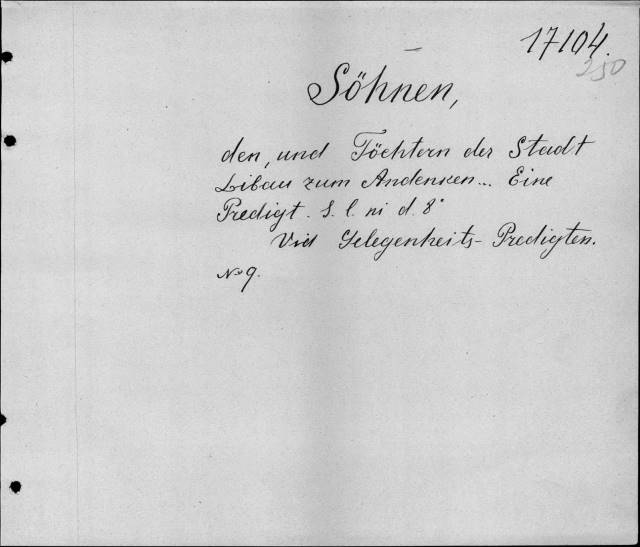 17104.
250
Söhnen,
den, und Töchtern der Stadt
Libau zum Andenken... Eine
Predigt. S. l. ni d. 8°
Vid Gelegenheits-Predigten.
No 9.